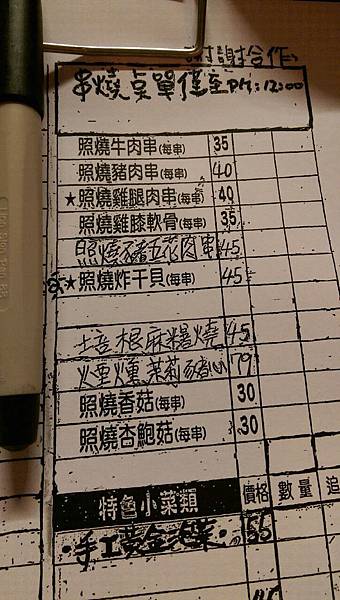 謝謝合作
串燒菜單僅至PM:12:00
照燒牛肉串(每串) 35
照燒豬肉串(每串) 40
★照燒雞腿肉串(每串) 40
照燒雞膝軟骨(每串) 35
照燒豬五花肉串 45
★照燒炸干貝(每串) 45
培根麻糬燒 45
煙燻茉莉豬心 79
照燒香菇(每串) 30
照燒杏鮑菇(每串) 30
特色小菜類 價格 數量 追
手工黃金泡菜 55